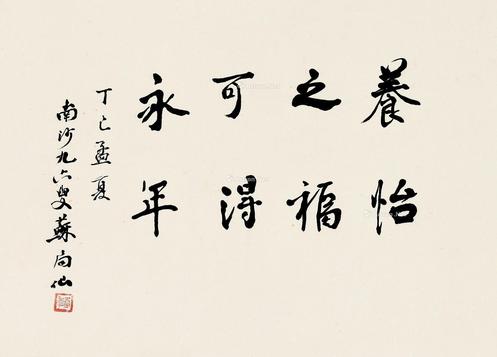 養怡
之福
可得
永年
丁巳孟夏
南沙九六叟蘇局仙